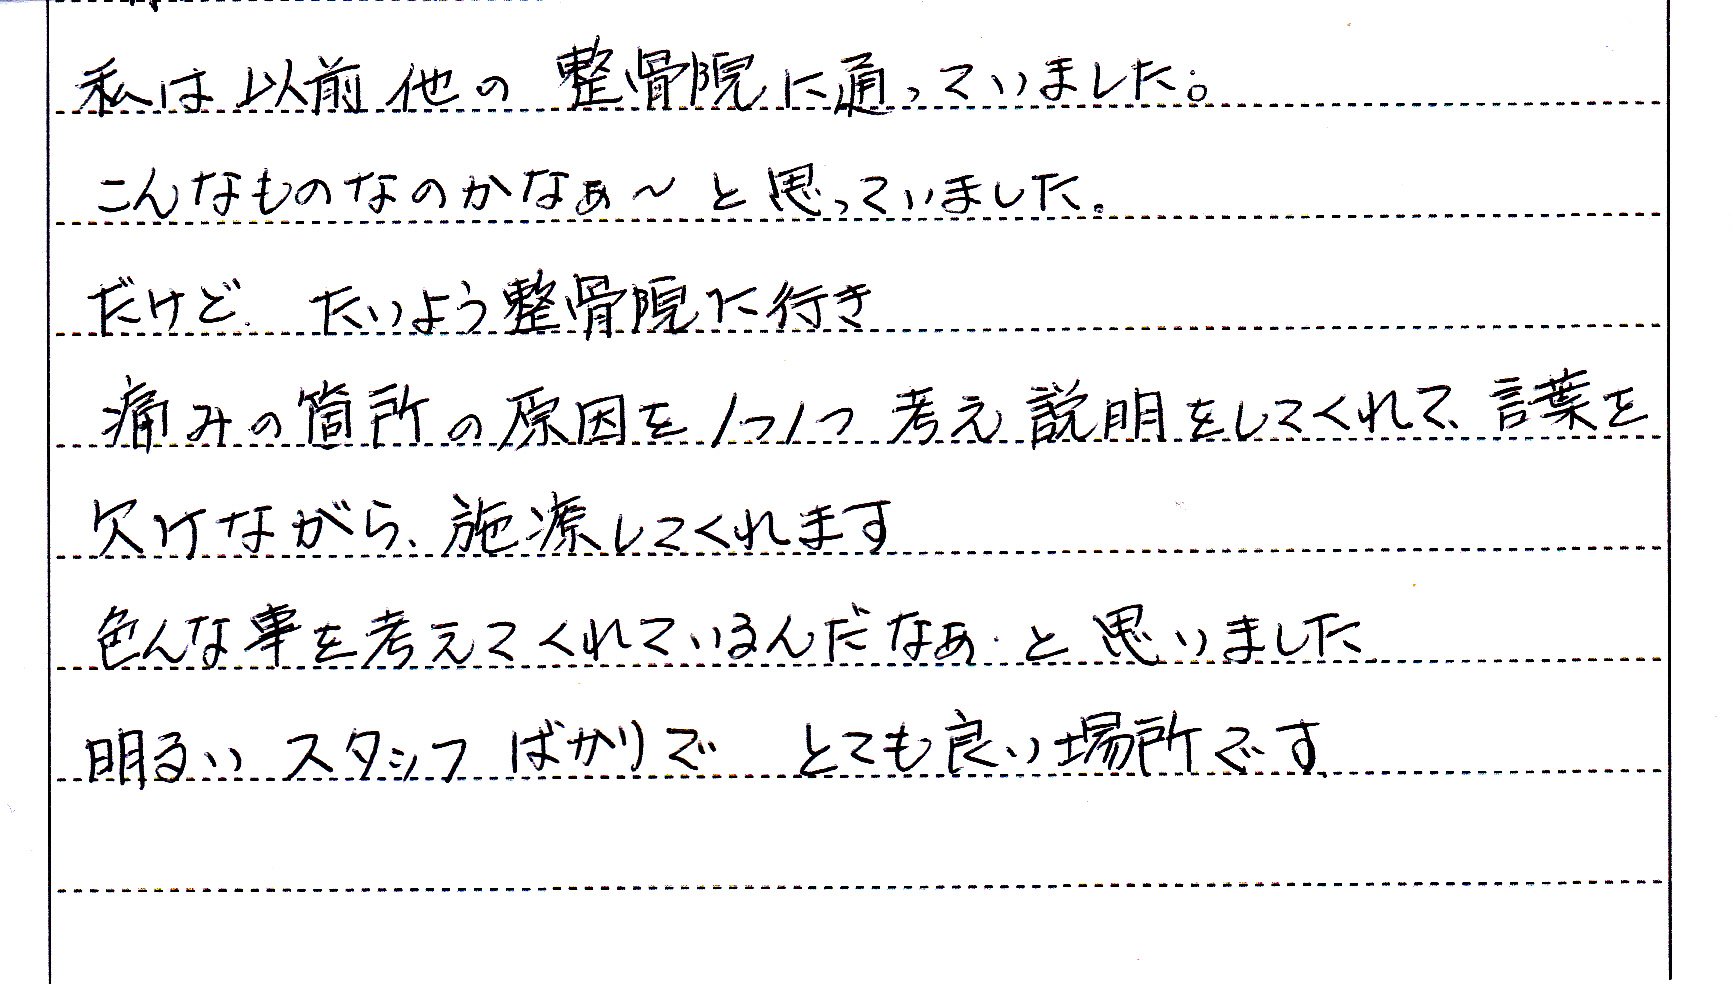 私は以前他の整骨院に通っていました。
こんなものなのかなぁ～と思っていました。
だけど、たいよう整骨院に行き
痛みの箇所の原因を1つ1つ考え説明をしてくれて、言葉を
欠けながら、施療してくれます
色んな事を考えてくれているんだなぁ、と思いました
明るいスタッフばかりで とても良い場所です